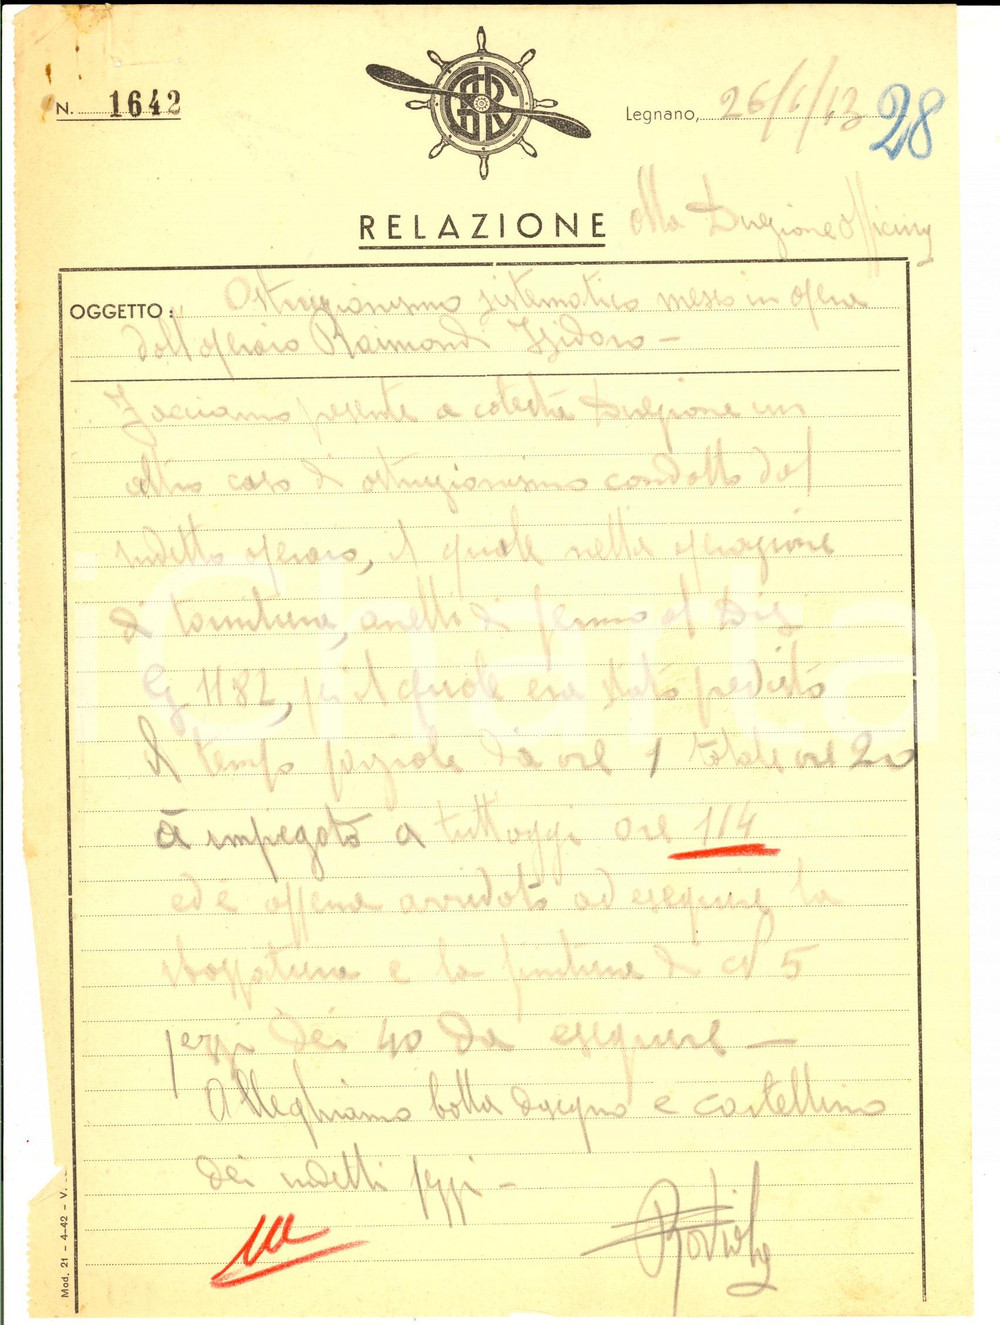 N. 1642
Legnano, 26/1/43 28
RELAZIONE alla Direzione Officina
OGGETTO: Ostruzionismo sistematico messo in opera
dall'operaio Raimondi Isidoro -
Facciamo presente a cotesta Direzione un
altro caso di ostruzionismo condotto dal
sudetto operaio, il quale nella operazione
di tornitura, anelli di fermo al Dis
G 1182, per il quale era stato previsto
il tempo parziale di ore 1 totale ore 20
à impegato a tutt'oggi ore 114
ed è appena arrivato ad eseguire la
sbozzatura e la finitura di N° 5
pezzi dei 40 da eseguire -
Alleghiamo bolla disegno e cartellino
dei sudetti pezzi -
Mod. 21 - 4-42 - V.
iCharta